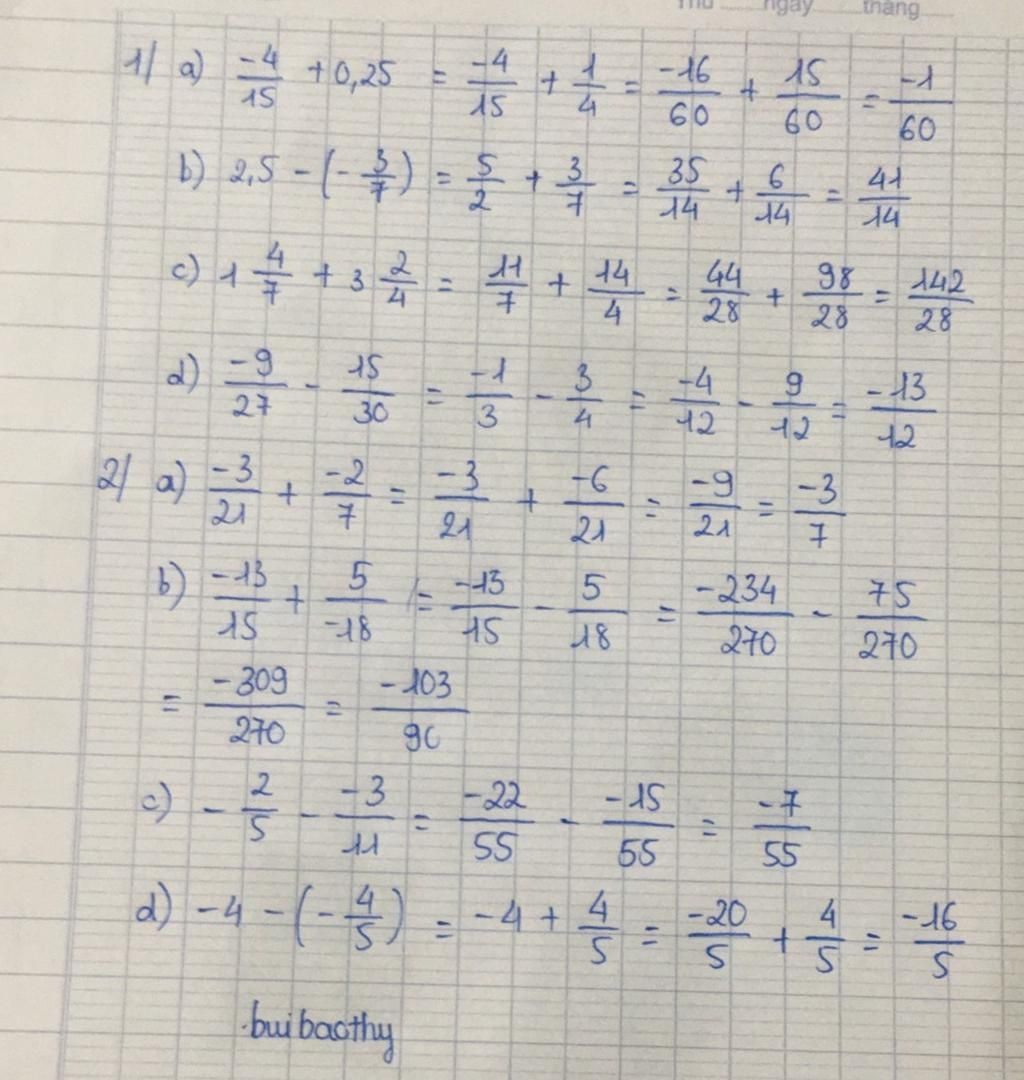 Thứ ngày tháng
1/ a) -4/15 + 0,25 = -4/15 + 1/4 = -16/60 + 15/60 = -1/60
b) 2,5 - (-3/7) = 5/2 + 3/7 = 35/14 + 6/14 = 41/14
c) 1 4/7 + 3 2/4 = 11/7 + 14/4 = 44/28 + 98/28 = 142/28
d) -9/27 - 15/30 = -1/3 - 3/4 = -4/12 - 9/12 = -13/12
2/ a) -3/21 + -2/7 = -3/21 + -6/21 = -9/21 = -3/7
b) -13/15 + 5/-18 = -13/15 - 5/18 = -234/270 - 75/270
= -309/270 = -103/90
c) - 2/5 - -3/11 = -22/55 - -15/55 = -7/55
d) -4 - (-4/5) = -4 + 4/5 = -20/5 + 4/5 = -16/5
.buibaothy